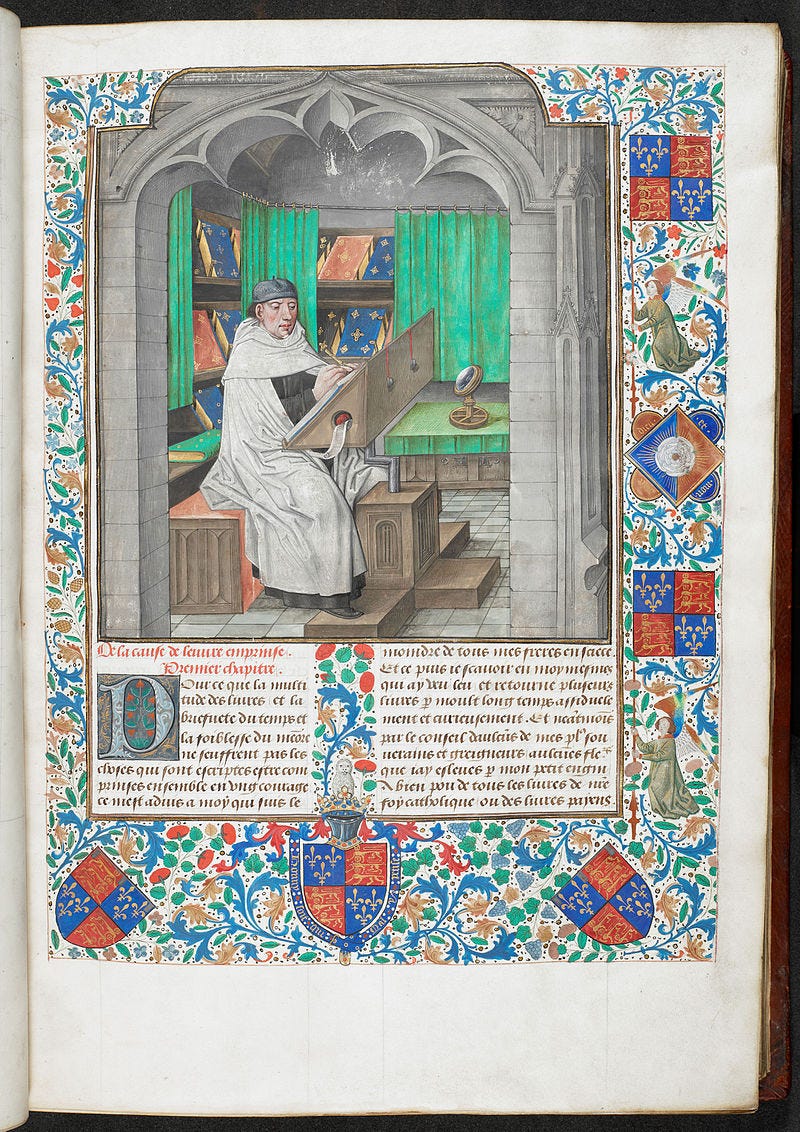 De la cause de leuvre emprinse.
Premier chapitre.
Pour ce que la multi
tude des liures et la
briefuete du temps et
la foiblesse du
ne seuffrent pas les
choses qui sont escriptes estre com
prinses ensemble en vng courage
ce mest aduis a moy qui suis le
moindre de tous mes freres en saece.
Et ce puis ie scauoir en moy mesmes
qui ay veu leu et retourne plusieurs
liures p moult long temps assiduele
ment et curieusement. Et neatmois
par le conseil daulcūs de mes
uerains et greigneurs aulcūes fleˢ
que iay esleues p mon petit engin
A bien pou de tous les liures de nre
foy catholique ou des liures payens